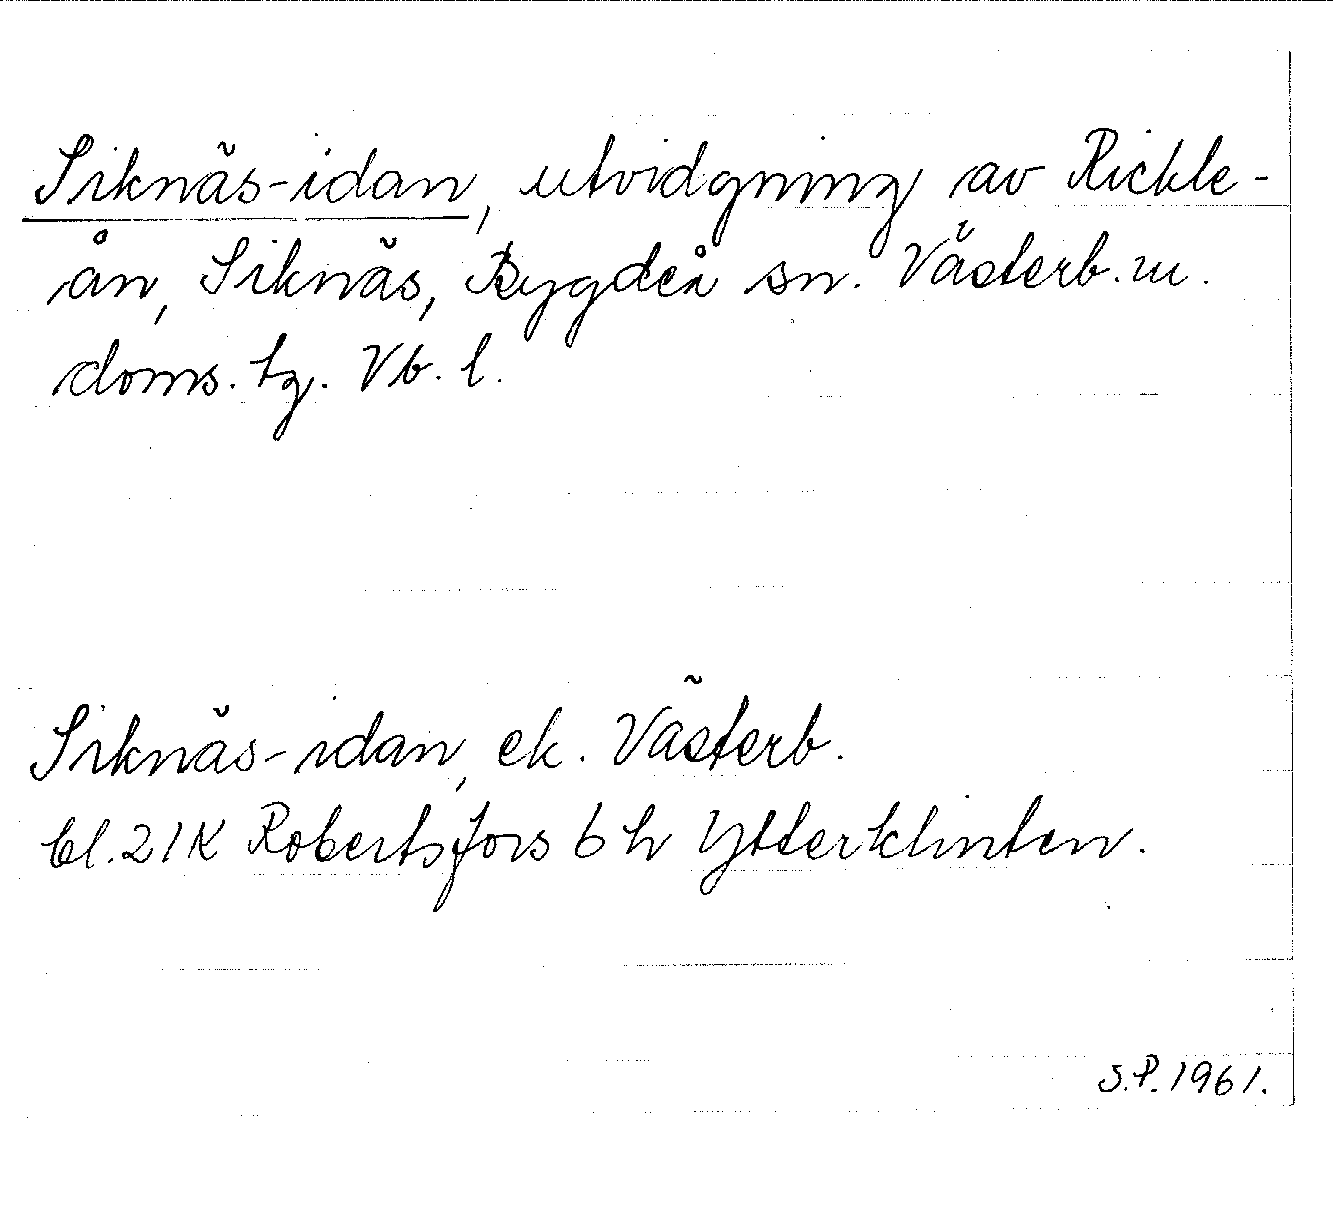 Siknäs-idan, utvidgning av Rickle-
ån, Siknäs, Bygdeå sn. Västerb. m.
doms. tg. Vb. l.
Siknäs-idan, ek. Västerb.
bl. 21K Robertsfors 6 h Ytterklinten.
S.P. 1961.